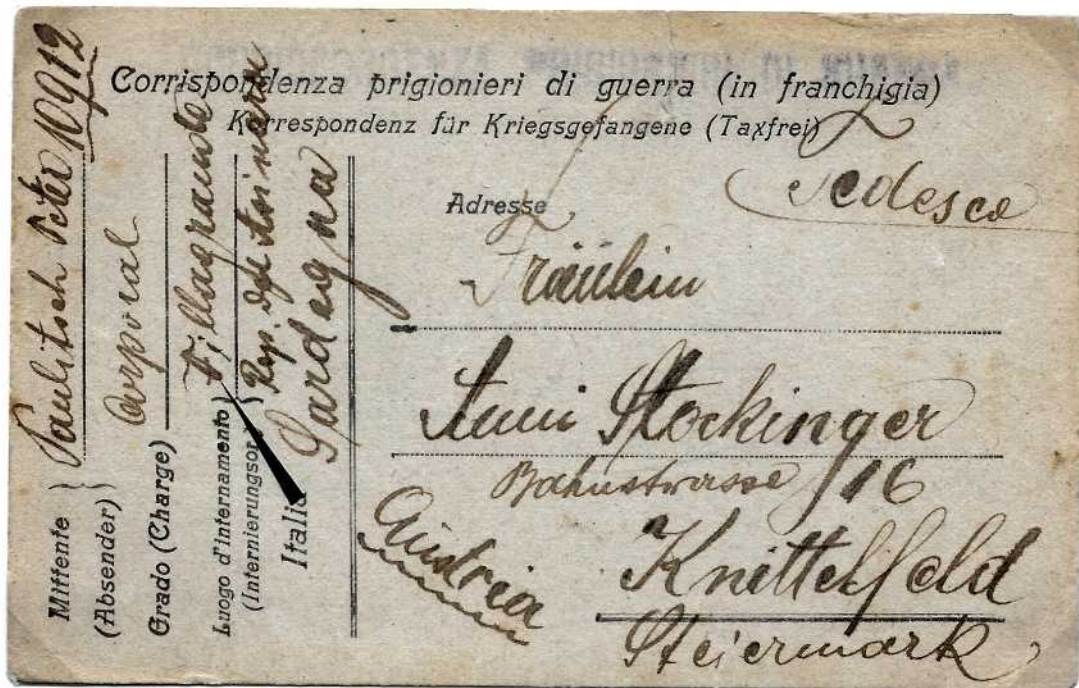 Corrispondenza prigionieri di guerra (in franchigia)
Korrespondenz für Kriegsgefangene (Taxfrei)
Tedesco
Adresse
Fräulein
Stockinger
Bahnstrasse 16
Knittelfeld
Steiermark
Austria
Mittente
(Absender)
Paulitsch Peter 10912
Grado (Charge)
Corporal
Luogo d'internamento
(Internierungsort)
Italia
Sardegna